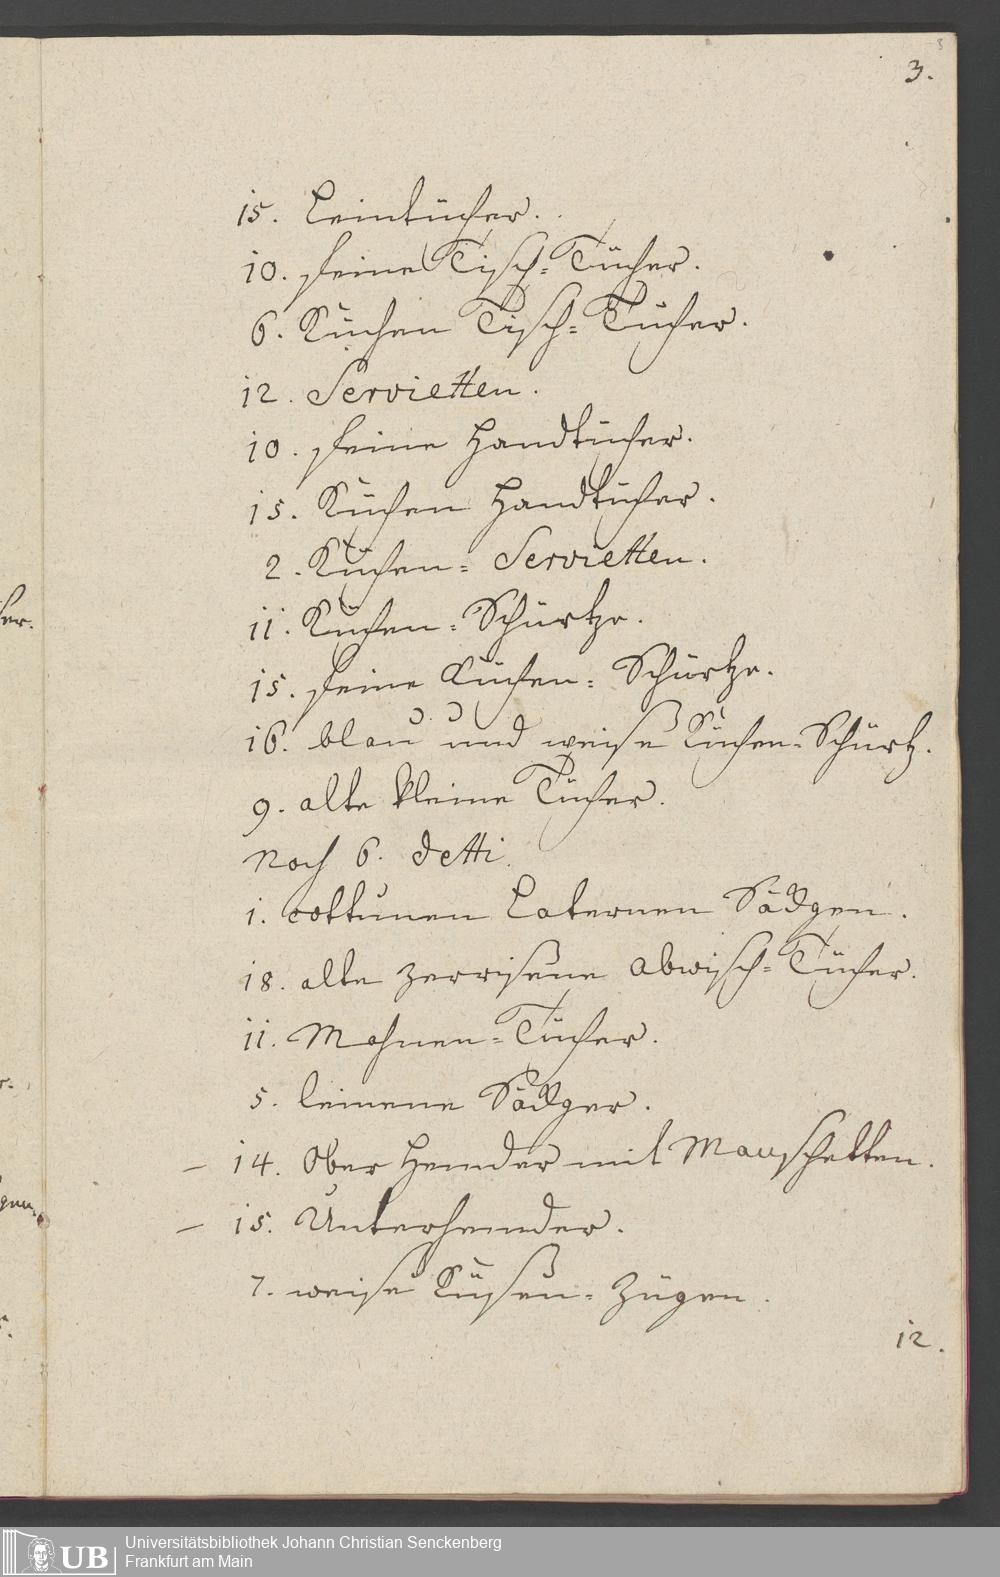 3.
15. Leintücher.
10. feine Tisch-Tücher.
6. Küchen Tisch-Tücher.
12. Servietten.
10. feine Handtücher.
15. Küchen Handtücher.
2. Küchen-Servietten.
11. Küchen-Schürtze.
15. feine Küchen-Schürtze.
16. blau und weise Küchen-Schürtz.
9. alte kleine Tücher.
Noch 6. detti.
1. cottunen Laternen Säckgen.
18. alte zerrisene Abwisch-Tücher.
11. Mahnen-Tücher.
5. leinene Säckger.
– 14. Ober Hemder mit Manschetten.
– 15. Unterhemder.
7. weise Küsen-Zügen.
12.
UB
Universitätsbibliothek Johann Christian Senckenberg
Frankfurt am Main